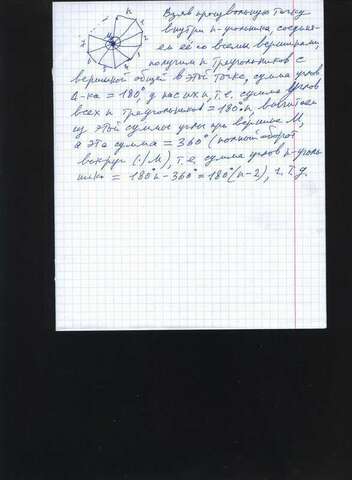 Взяв произвольную точку
внутри n-угольника, соединя-
ем её со всеми вершинами,
получим n треугольников с
вершиной общей в этой точке, сумма углов
Δ-ка = 180°, у нас их n, т.е. сумма углов
всех n треугольников = 180°·n вычитаем
из этой суммы углы при вершине M,
а эта сумма = 360° (полный оборот
вокруг (·) M), т.е. сумма углов n-уголь-
ника = 180°n - 360° = 180°(n-2), ч.т.д.
n
1
2
M